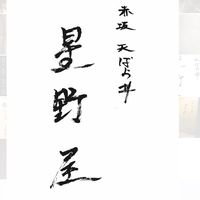 赤坂 天ぱら丼
星野屋